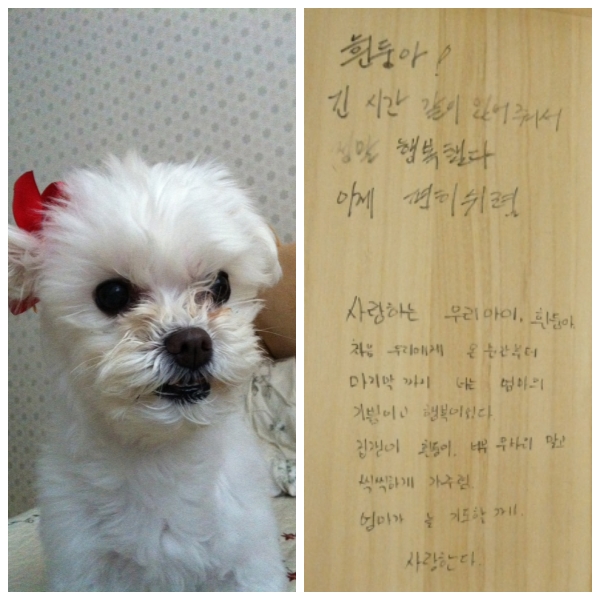 흰둥아!
긴 시간 같이 있어줘서
정말 행복했다
이제 편히쉬렴
사랑하는 우리아이, 흰둥아
처음 우리에게 온 순간부터
마지막 까지 너는 엄마의
기쁨이고 행복이었다
흰둥이, 너무 무서워 말고
씩씩하게 가주렴.
엄마가 늘 기도할 께!
사랑한다.